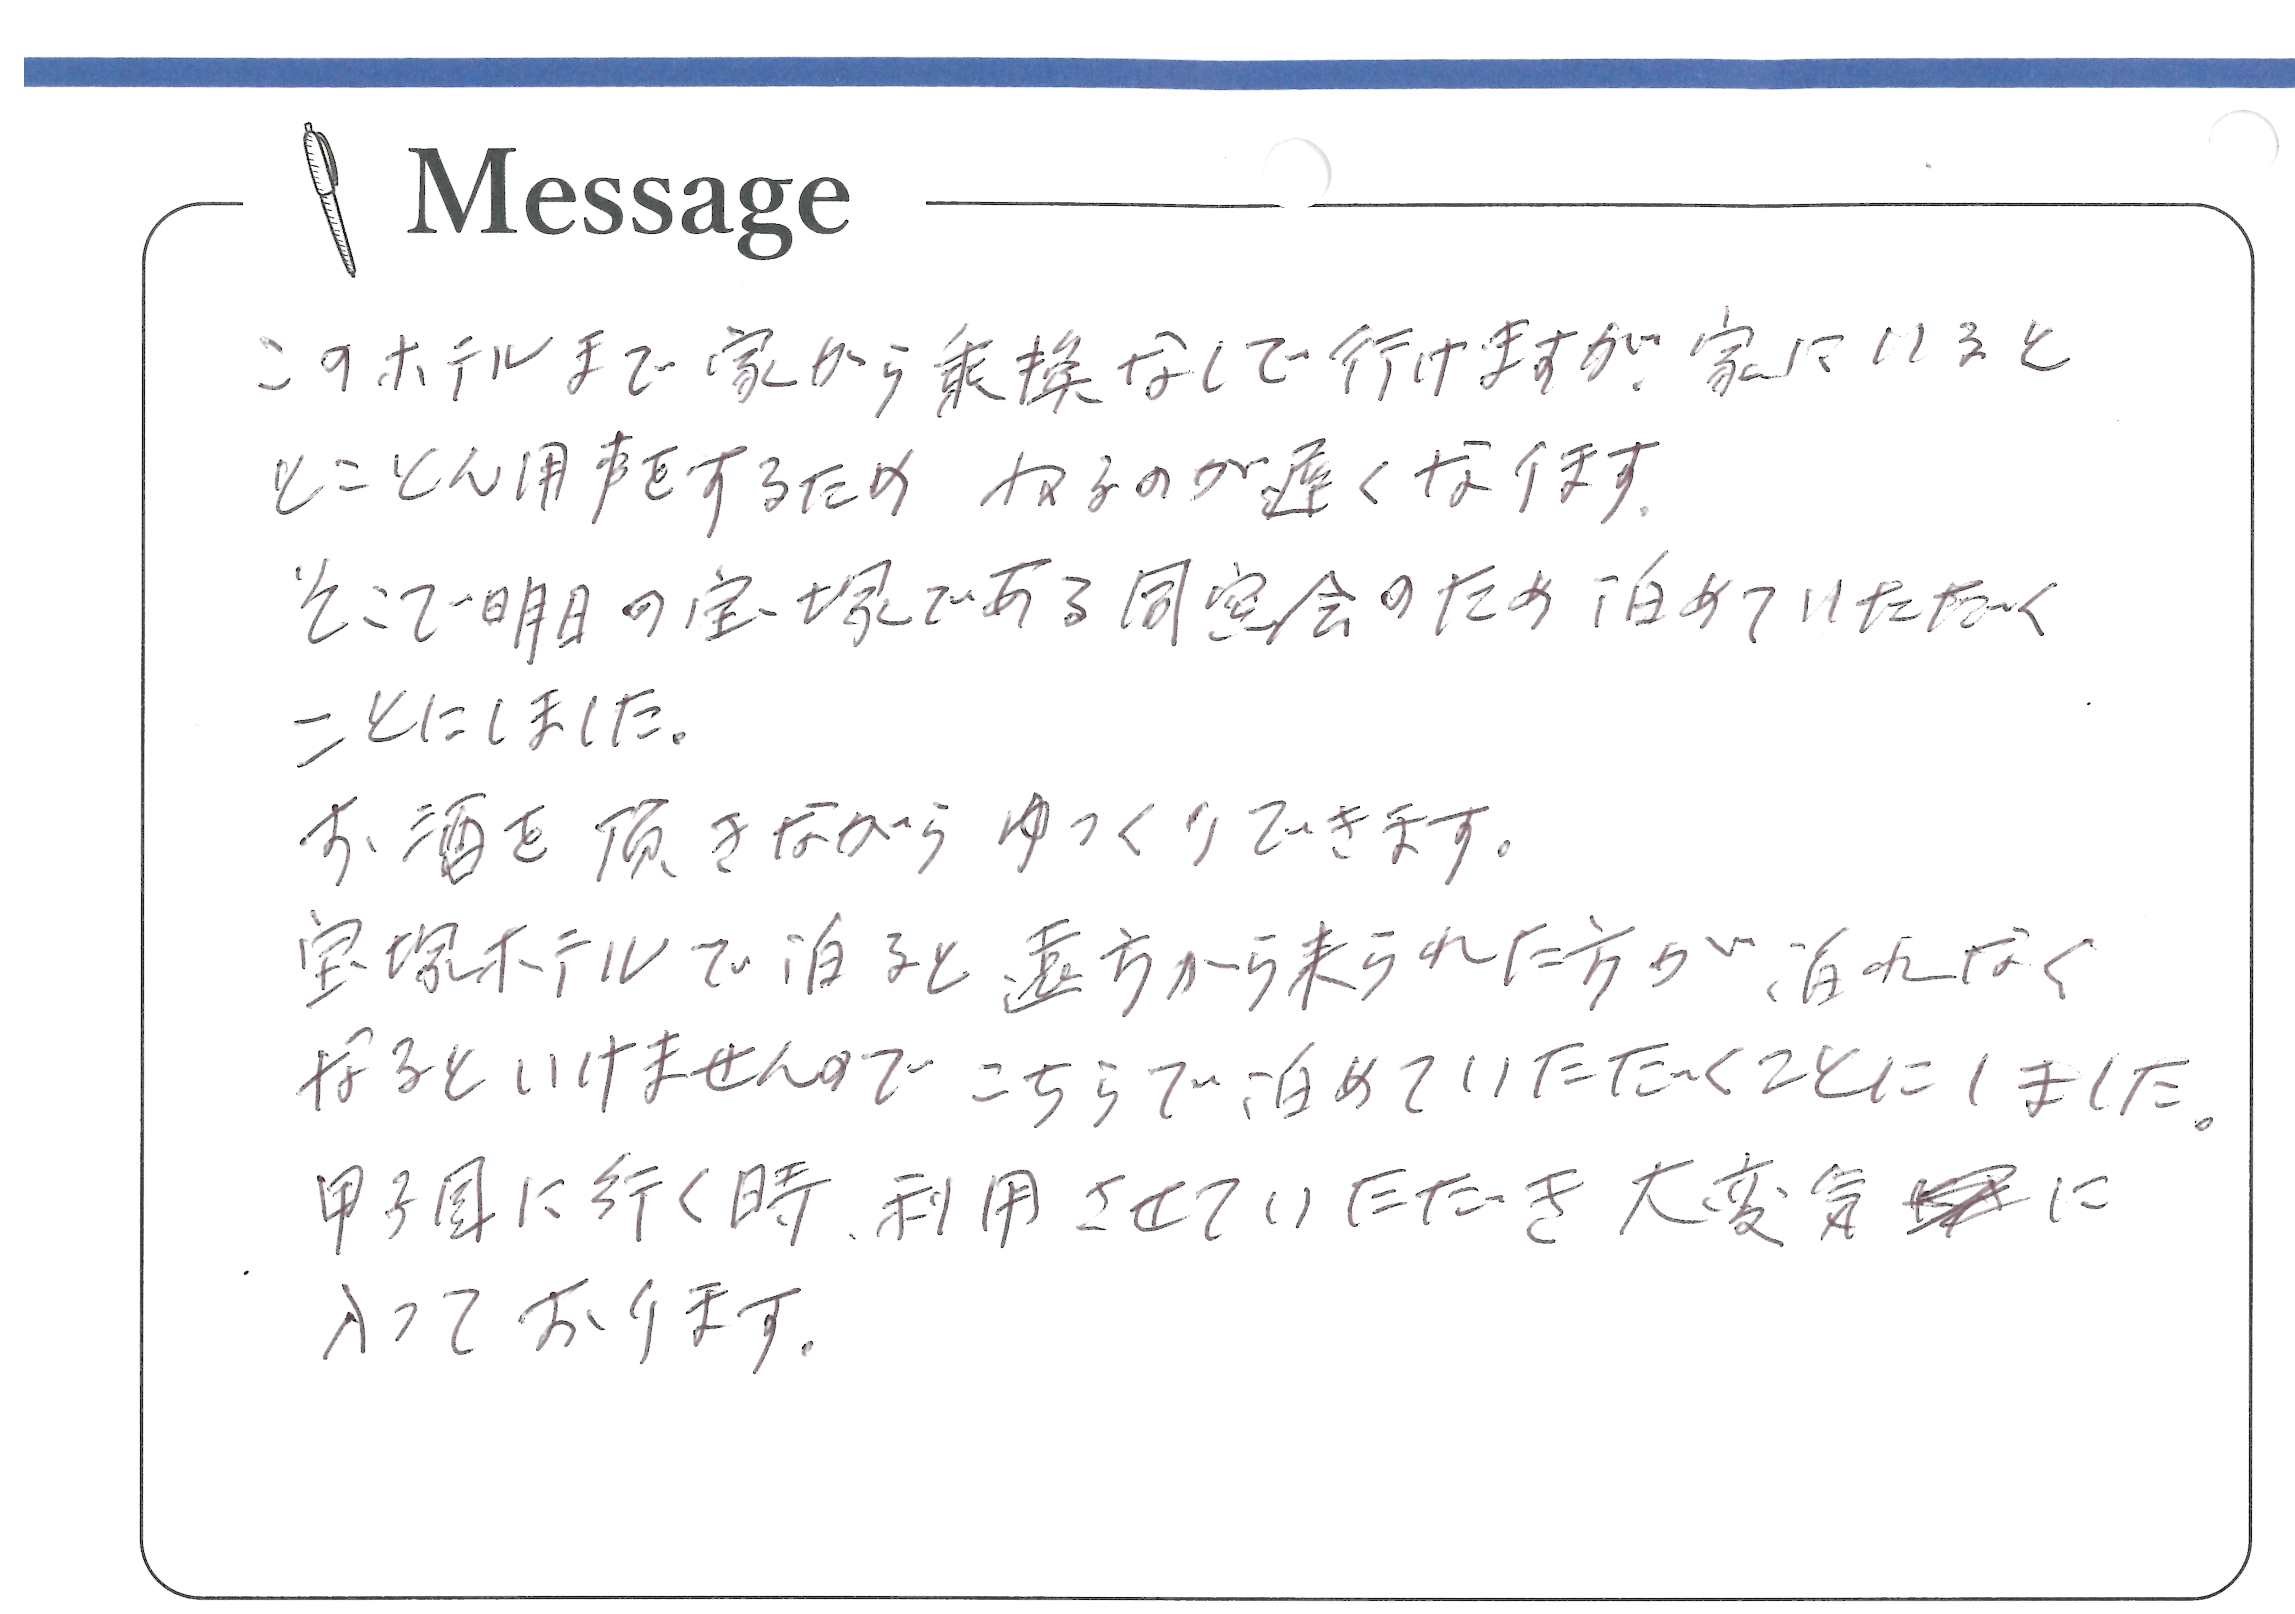 Message
このホテルまで家から乗換なしで行けますが、家にいると
とことん用事をするため ねるのが遅くなります。
そこで明日の宝塚である同窓会のため泊めていただく
ことにしました。
お酒を頂きながらゆっくりできます。
宝塚ホテルで泊ると遠方から来られた方が泊れなく
なるといけませんのでこちらで泊めていただくことにしました。
甲子園に行く時、利用させていただき大変気に
入っております。